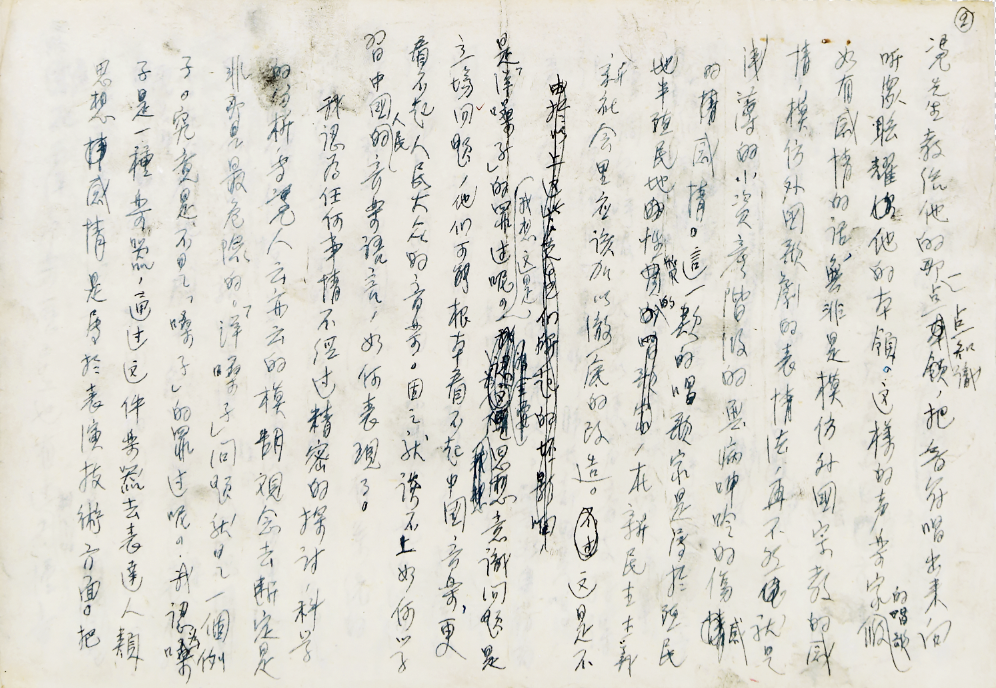 ②
凴先生教給他的那一点知識,把音符唱出来向
听眾眩耀他的本領。这樣的声樂家的唱歌假
如有感情的話,無非是模仿外國宗教的感
情,模仿外國歌劇的表情法,再不然就是
浅薄的小資產階級的無病呻吟的傷感
的情感。這一類的唱歌家是屬於殖民
地半殖民地的,在新民主主義
新社会里应該加以徹底的改造。不过这是不
是「洋嗓子」的罪过呢?我想这是思想意識問題是
立場问題,他們可能根本看不起中國音樂,更
看不起人民大众的音樂。因之就談不上如何学
習中國的人民音樂語言,如何表現了。
我認为任何事情不經过精密的探討科学
的分析就人云亦云的模糊观念去断定是
非那是最危險的。「洋嗓子」问题就是一個例
子。究竟是不是「嗓子」的罪过呢。我認为嗓
子是一種樂器,通过这件樂器去表達人類
思想感情是屬於表演技術方面。把